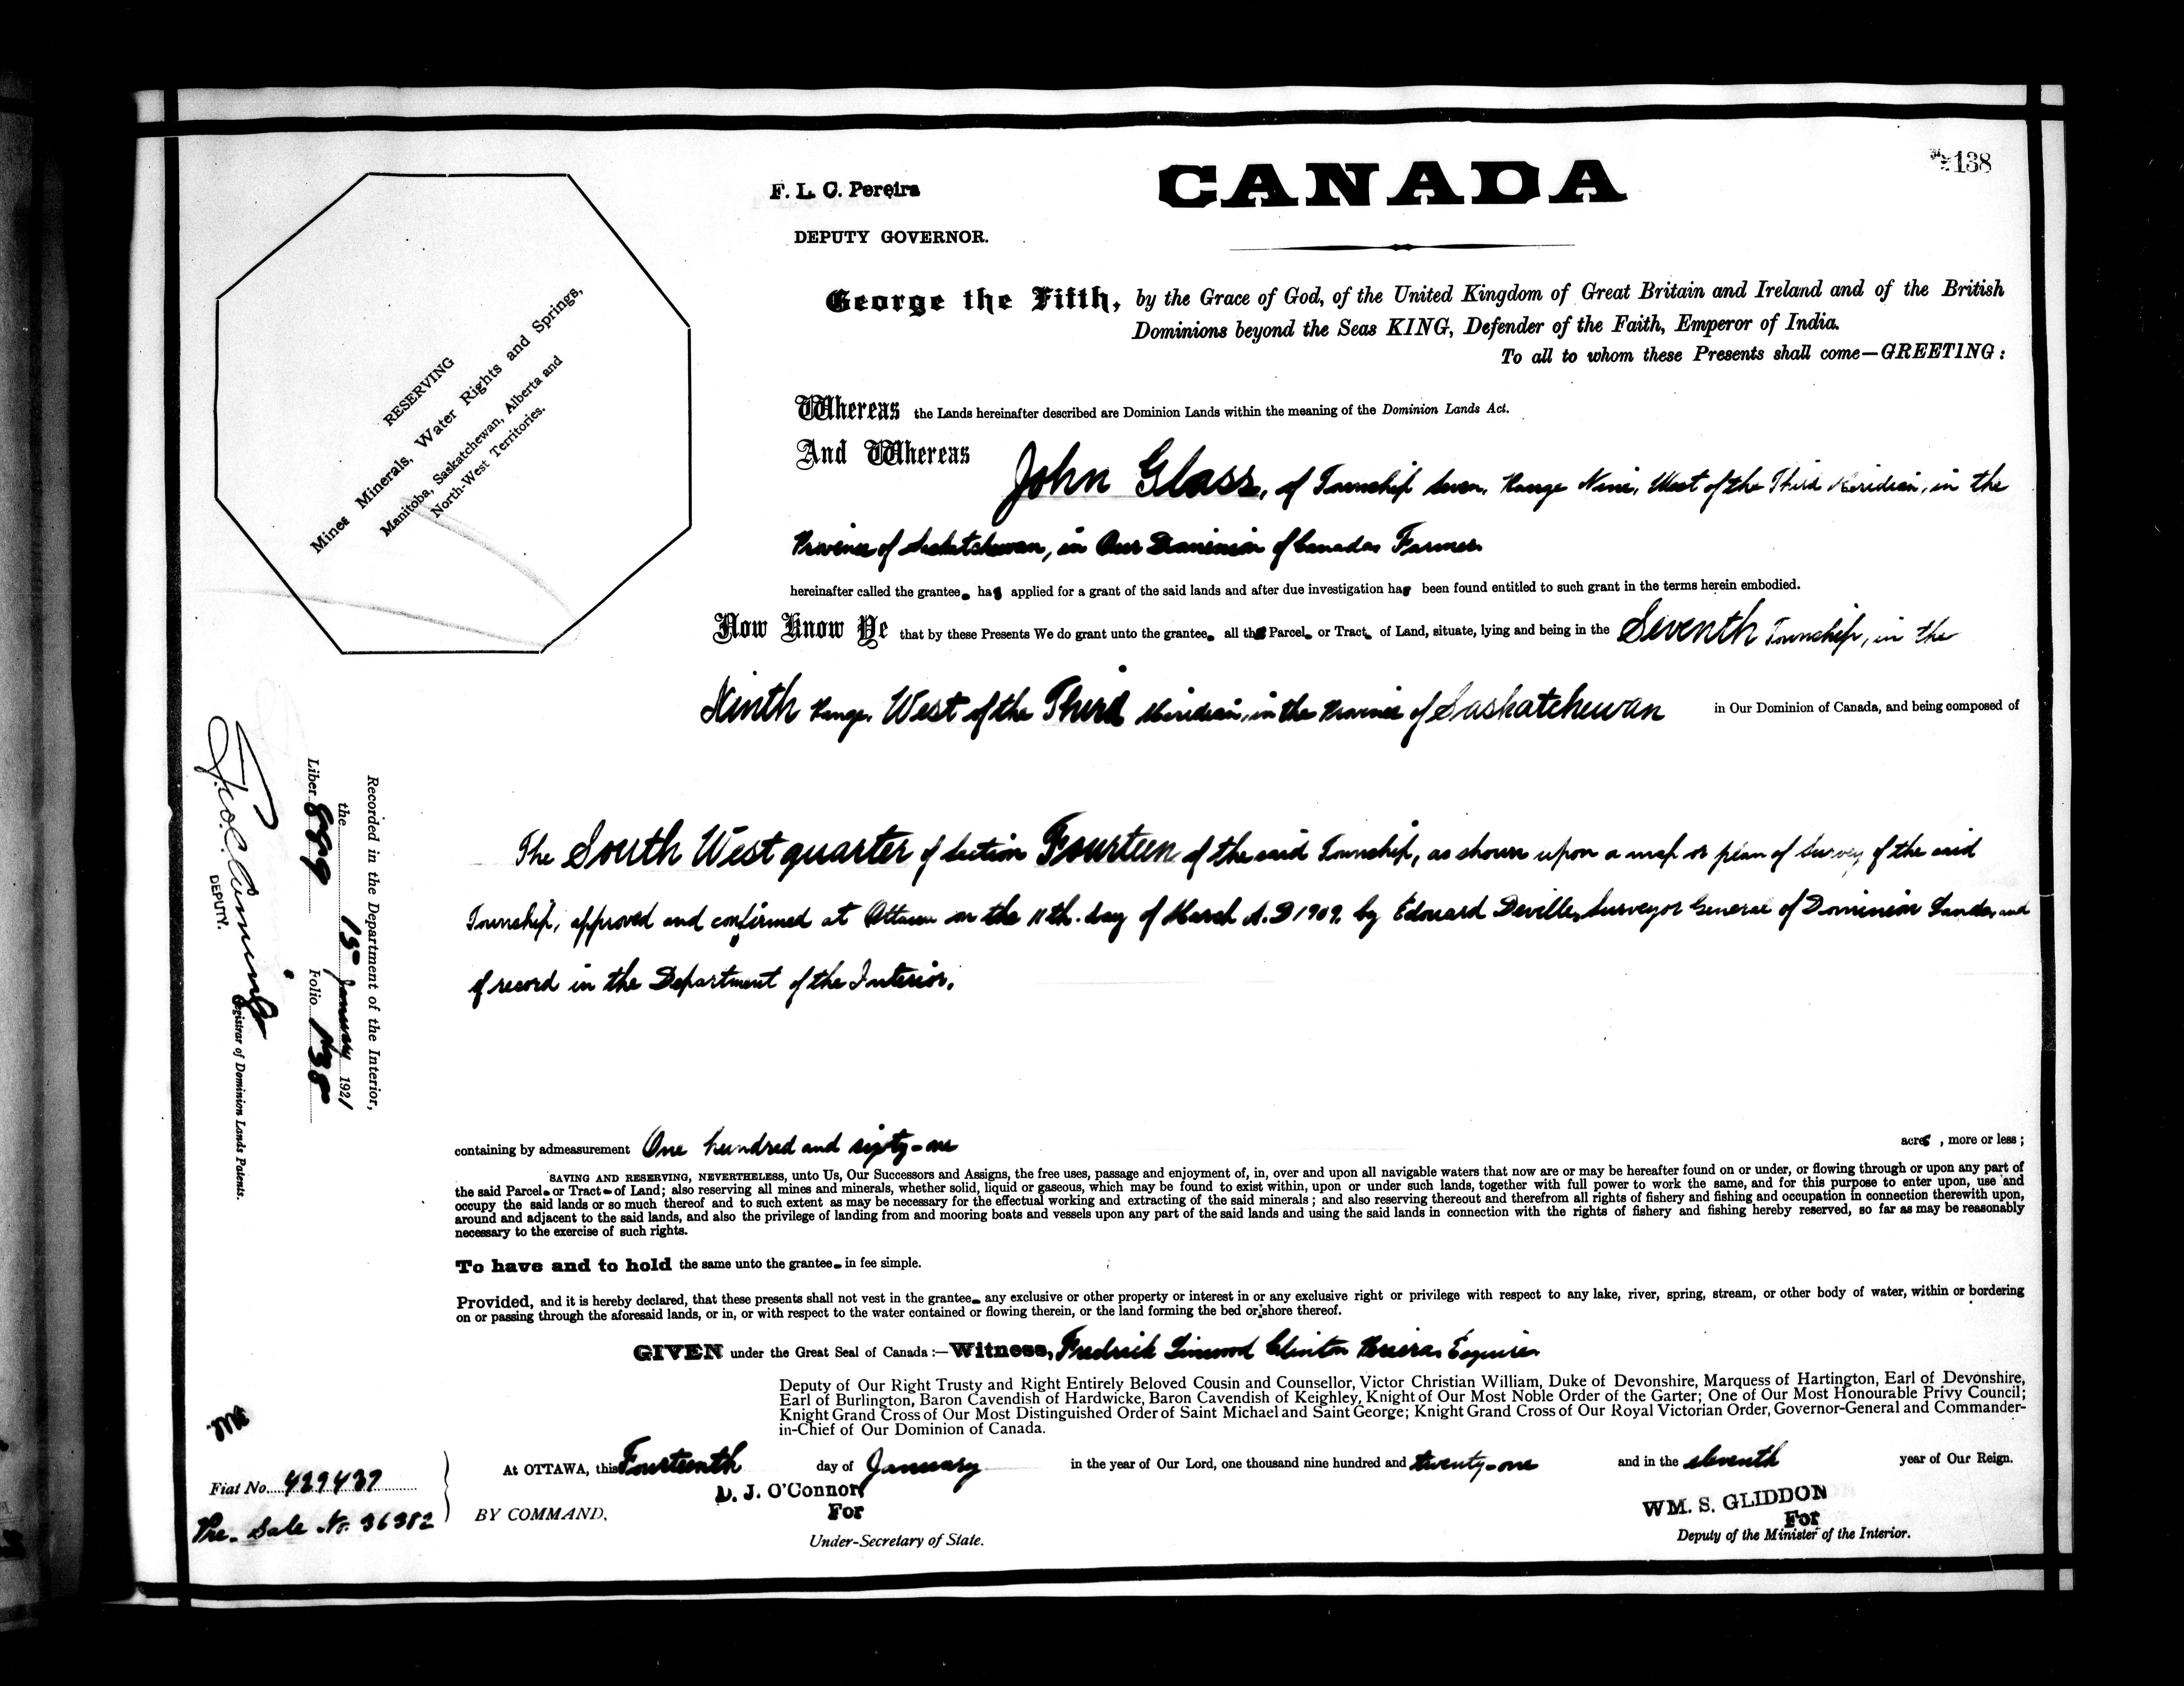 138
CANADA
F. L. C. Pereira
DEPUTY GOVERNOR.
George the Fifth, by the Grace of God, of the United Kingdom of Great Britain and Ireland and of the British
Dominions beyond the Seas KING, Defender of the Faith, Emperor of India.
To all to whom these Presents shall come—GREETING:
RESERVING
Mines Minerals, Water Rights and Springs,
Manitoba, Saskatchewan, Alberta and
North-West Territories.
Whereas the Lands hereinafter described are Dominion Lands within the meaning of the Dominion Lands Act.
And Whereas John Glass, of Township Seven, Range Nine, West of the Third Meridian, in the
Province of Saskatchewan, in Our Dominion of Canada, Farmer
hereinafter called the grantee, has applied for a grant of the said lands and after due investigation has been found entitled to such grant in the terms herein embodied.
Now Know Ye that by these Presents We do grant unto the grantee, all the Parcel or Tract of Land, situate, lying and being in the Seventh Township, in the
Ninth Range, West of the Third Meridian, in the Province of Saskatchewan in Our Dominion of Canada, and being composed of
The South West quarter of Section Fourteen of the said Township, as shown upon a map or plan of Survey of the said
Township, approved and confirmed at Ottawa on the 11th. day of March A.D 1909, by Edouard Deville, Surveyor General of Dominion Lands, and
of record in the Department of the Interior.
containing by admeasurement One hundred and sixty-one acres, more or less;
SAVING AND RESERVING, NEVERTHELESS, unto Us, Our Successors and Assigns, the free uses, passage and enjoyment of, in, over and upon all navigable waters that now are or may be hereafter found on or under, or flowing through or upon any part of
the said Parcel or Tract of Land; also reserving all mines and minerals, whether solid, liquid or gaseous, which may be found to exist within, upon or under such lands, together with full power to work the same, and for this purpose to enter upon, use and
occupy the said lands or so much thereof and to such extent as may be necessary for the effectual working and extracting of the said minerals; and also reserving thereout and therefrom all rights of fishery and fishing and occupation in connection therewith upon,
around and adjacent to the said lands, and also the privilege of landing from and mooring boats and vessels upon any part of the said lands and using the said lands in connection with the rights of fishery and fishing hereby reserved, so far as may be reasonably
necessary to the exercise of such rights.
To have and to hold the same unto the grantee in fee simple.
Provided, and it is hereby declared, that these presents shall not vest in the grantee any exclusive or other property or interest in or any exclusive right or privilege with respect to any lake, river, spring, stream, or other body of water, within or bordering
on or passing through the aforesaid lands, or in, or with respect to the water contained or flowing therein, or the land forming the bed or shore thereof.
GIVEN under the Great Seal of Canada:—Witness, Fredrick Linwood Clinton Pereira, Esquire
Deputy of Our Right Trusty and Right Entirely Beloved Cousin and Counsellor, Victor Christian William, Duke of Devonshire, Marquess of Hartington, Earl of Devonshire,
Earl of Burlington, Baron Cavendish of Hardwicke, Baron Cavendish of Keighley, Knight of Our Most Noble Order of the Garter; One of Our Most Honourable Privy Council;
Knight Grand Cross of Our Most Distinguished Order of Saint Michael and Saint George; Knight Grand Cross of Our Royal Victorian Order, Governor-General and Commander-
in-Chief of Our Dominion of Canada.
At OTTAWA, this Fourteenth day of January in the year of Our Lord, one thousand nine hundred and twenty-one and in the eleventh year of Our Reign.
D. J. O'Connor
For
BY COMMAND,
Under-Secretary of State.
WM. S. GLIDDON
For
Deputy of the Minister of the Interior.
Recorded in the Department of the Interior,
the 15 January 1921
Liber 889 Folio 138
DEPUTY. Registrar of Dominion Lands Patents.
Fiat No. 429437
Pre. Sale No. 36382